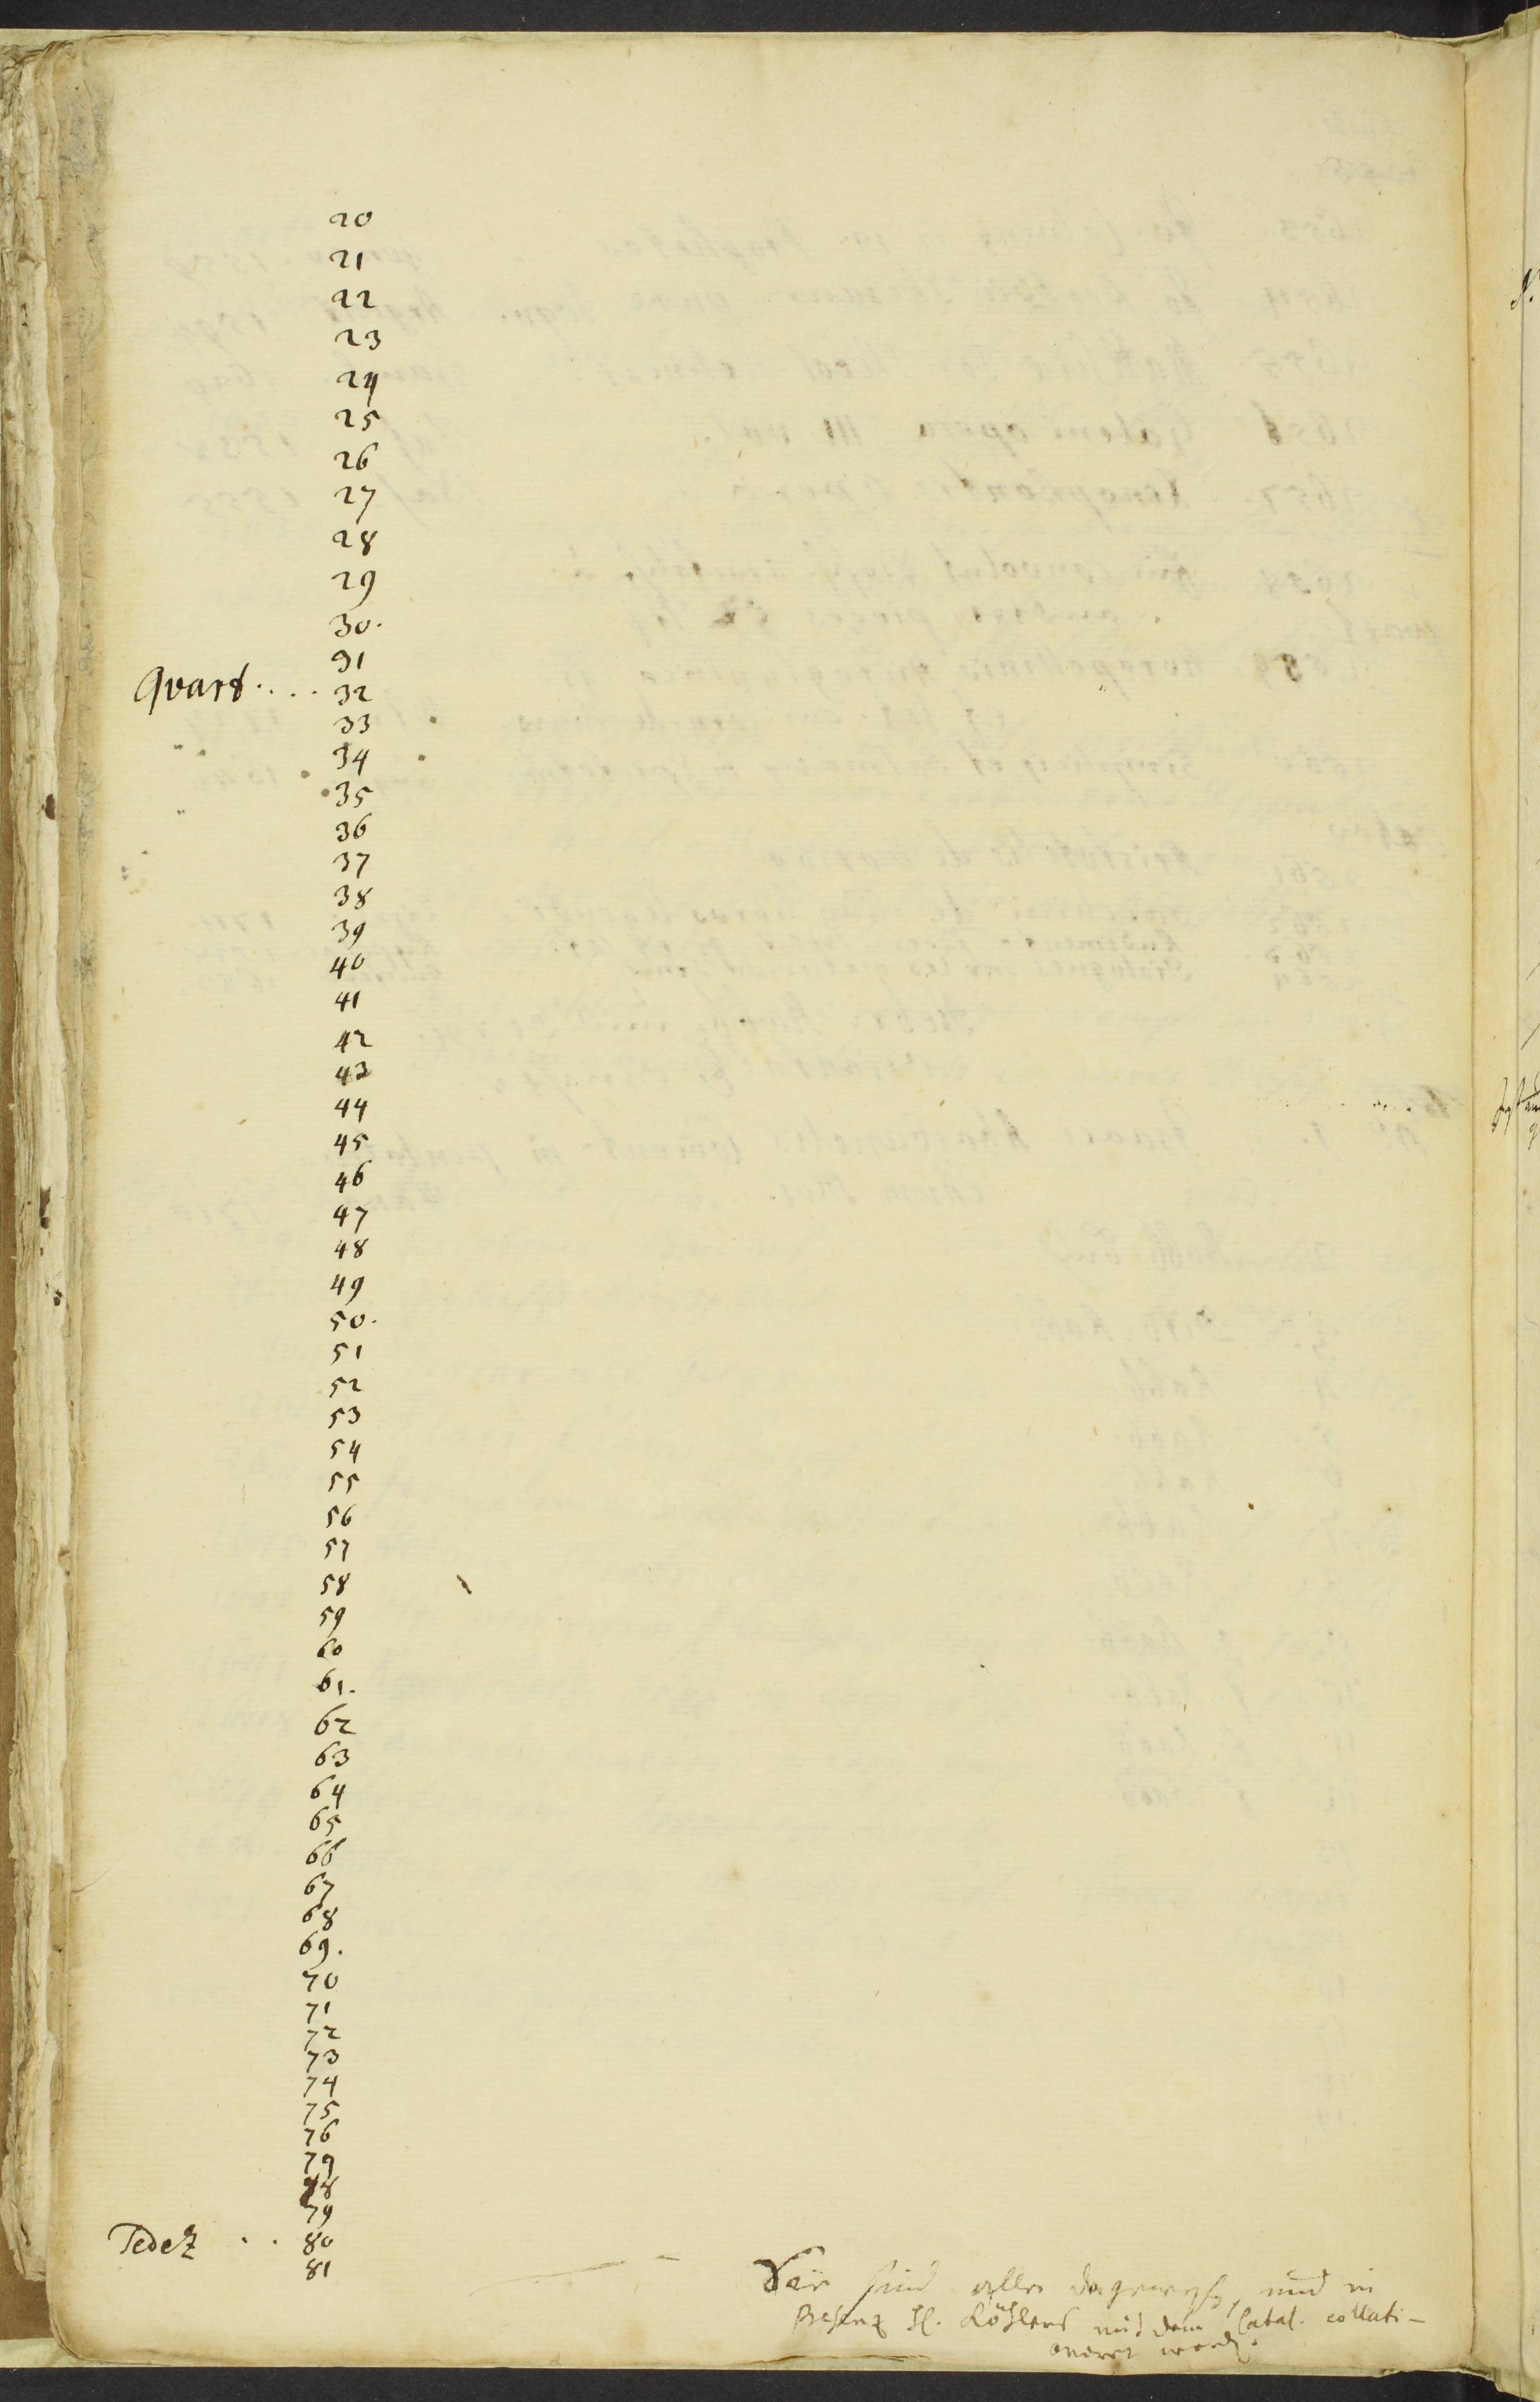 20
21
22
23
24
25
26
27
28
29
30.
31
Qvart.... 32
33
34
35
36
37
38
39
40
41
42
43
44
45
46
47
48
49
50.
51
52
53
54
55
56
57
58
59
60
61.
62
63
64
65
66
67
68
69.
70
71
72
73
74
75
76
77
78
79
.. 80
81
sind alle dagewesen, und in
H. Köhlers mit dem Catal. collati-
onirt word.